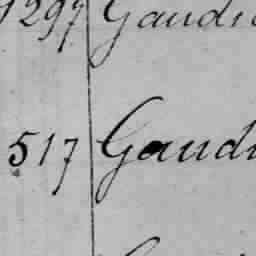 1297 Gaudi
517 Gaudi